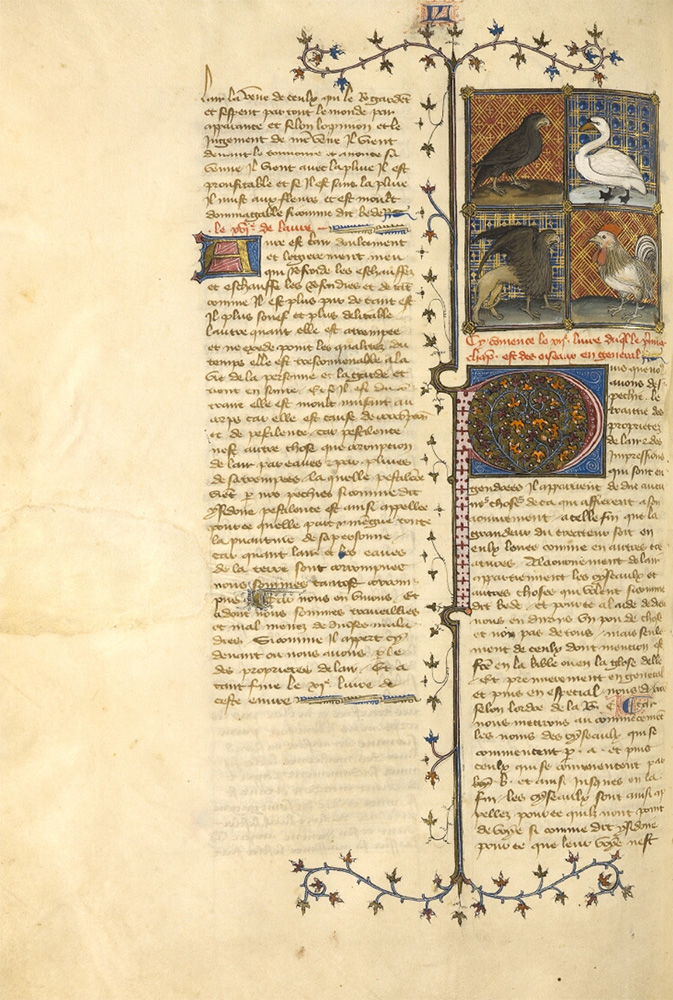 par la veue de ceulx qui le regardent
et sespent par tout le monde par
apparance et selon lopinion et le
Jugement de nre veue Il vient
devant le tonnoire et anonce sa
venue Il vient avec la pluie Il est
prouffitable et se Il est sans la pluie
Il nuist aux fleurs et est moult
dommagable si comme dit bede
le xvi. de laure
Aure est lair doulcement
et legierement meu
qui refroide les eschauffez
et eschauffe les refroidies et de tant
comme Il est plus pur de tant est
Il plus souef et plus delitable
laure quant elle est atrempee
et ne excede point les qualitez du
temps elle est tresconvenable a la
vie de la personne et la garde et
tient en sante. Et se Il est du
elle est moult nuisant au
corps car elle est cause de
et de pestilence. car pestilence
nest autre chose que corrupcion
de lair par eaues par pluies
la quelle pestilence
vient par nos pechies si comme dit
ysidore pestilence est ainsi appellee
pour ce quelle
la de sa personne
car quant lair et les eaues
de la terre sont corrompues
nous sommes tantost corrom
pus. Et
adont nous sommes travaillies
et mal menez de diverses mala
dies. Si comme Il appert cy
devant ou nous avons parle
des proprietes de lair. Et a
tant fine le xi. livre de
ceste euvre
Cy comence le xii. livre du quel le prime
chap. est des oiseaux en general
uis que no
avons des
peche. le
traitie des
proprietez
de lair et des
Impressions
qui sont en
gendrees Il appartient de dire aucu
nes choses de ce qui affierent a son
aournement. a celle fin que la
grandeur du createur soit en
eulx louee comme en autres cre
atures. A laornement de lair
appartiennent les oyseaulx et
autres choses qui volent si comme
dit bede. et pour ce a laide de dieu
nous en dirons Un pou de chose
et non pas de tous. mais seule
ment de ceulx dont mencion est
faite en la bible ou en la glose delle
Et premierement en general
et puis en especial nous dirons
selon lordre de la
nous mettrons au commencement
les noms des oyseaulx qui se
commencent par .a. et puis
ceulx qui se commencent par
.b. et ainsi Jusques en la
fin. les oyseaulx sont ainsi ap
pellez pour ce quilz nont point
de voye si comme dit ysidore
pour ce que leur voye nest